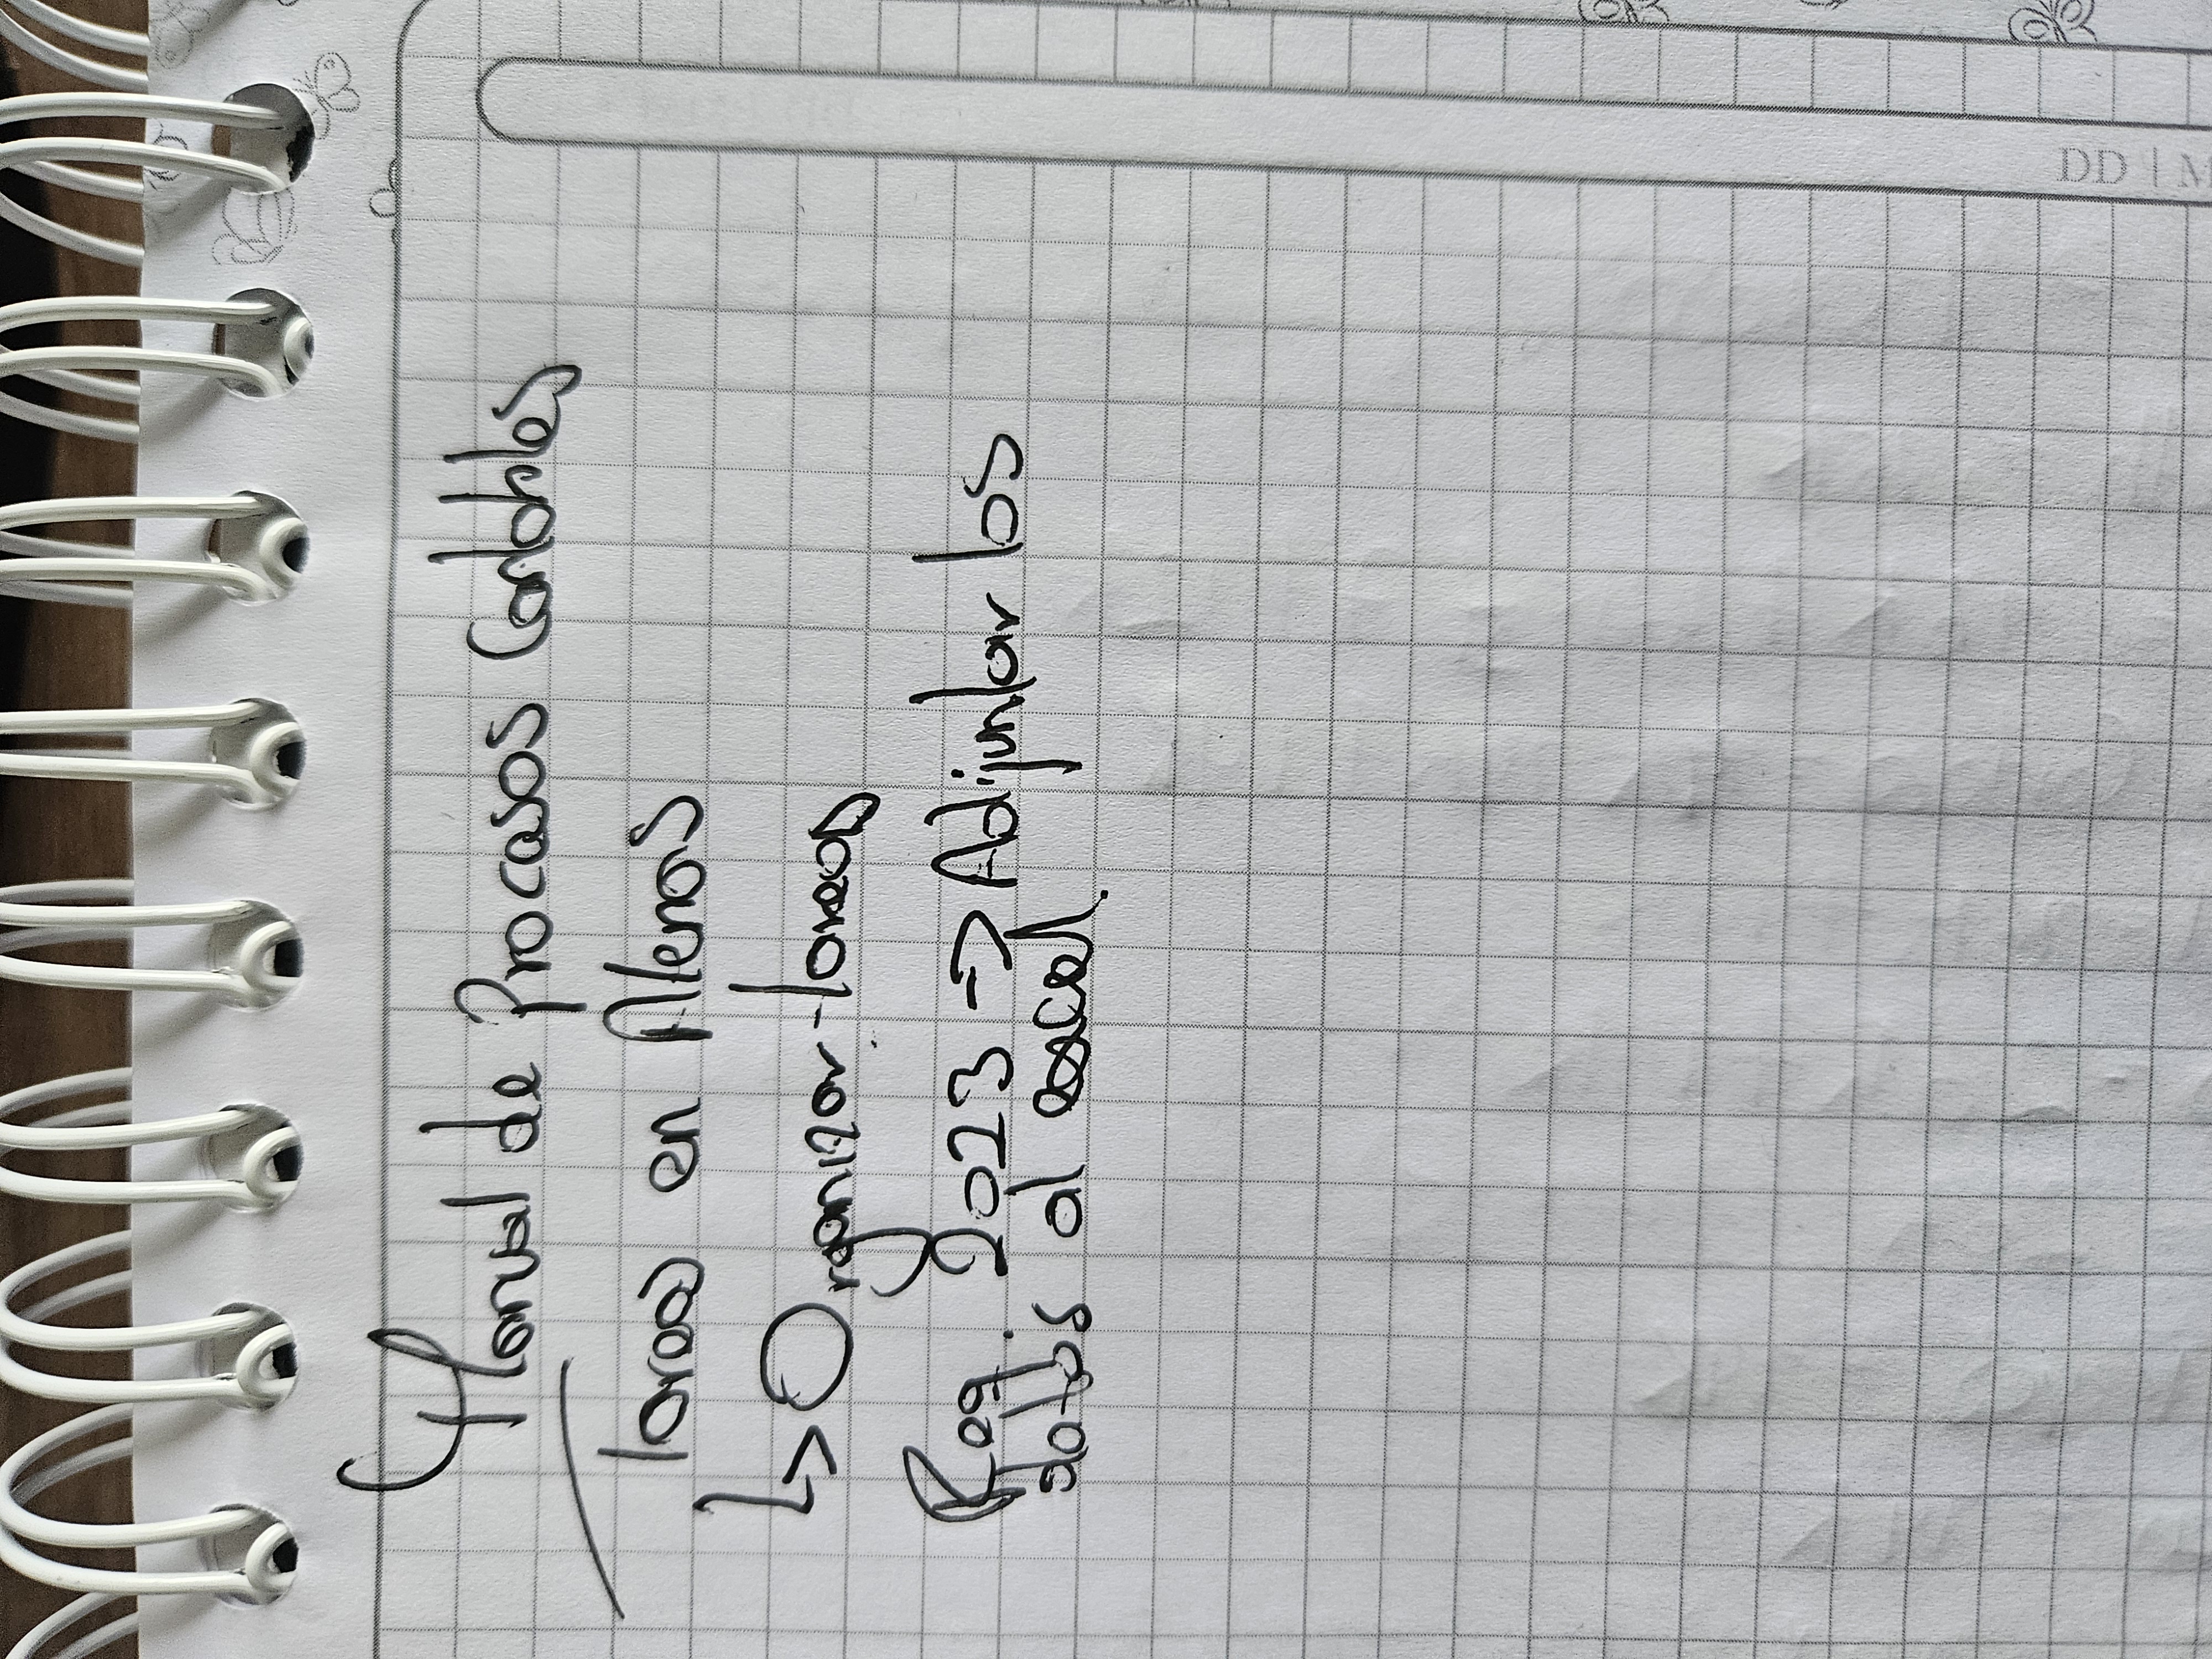 Manual de Procesos Contables
Tareas en Atenas
↳ Organizar tareas
Reg. 2023 → Adijuntar los
datos al excel.
DD | M